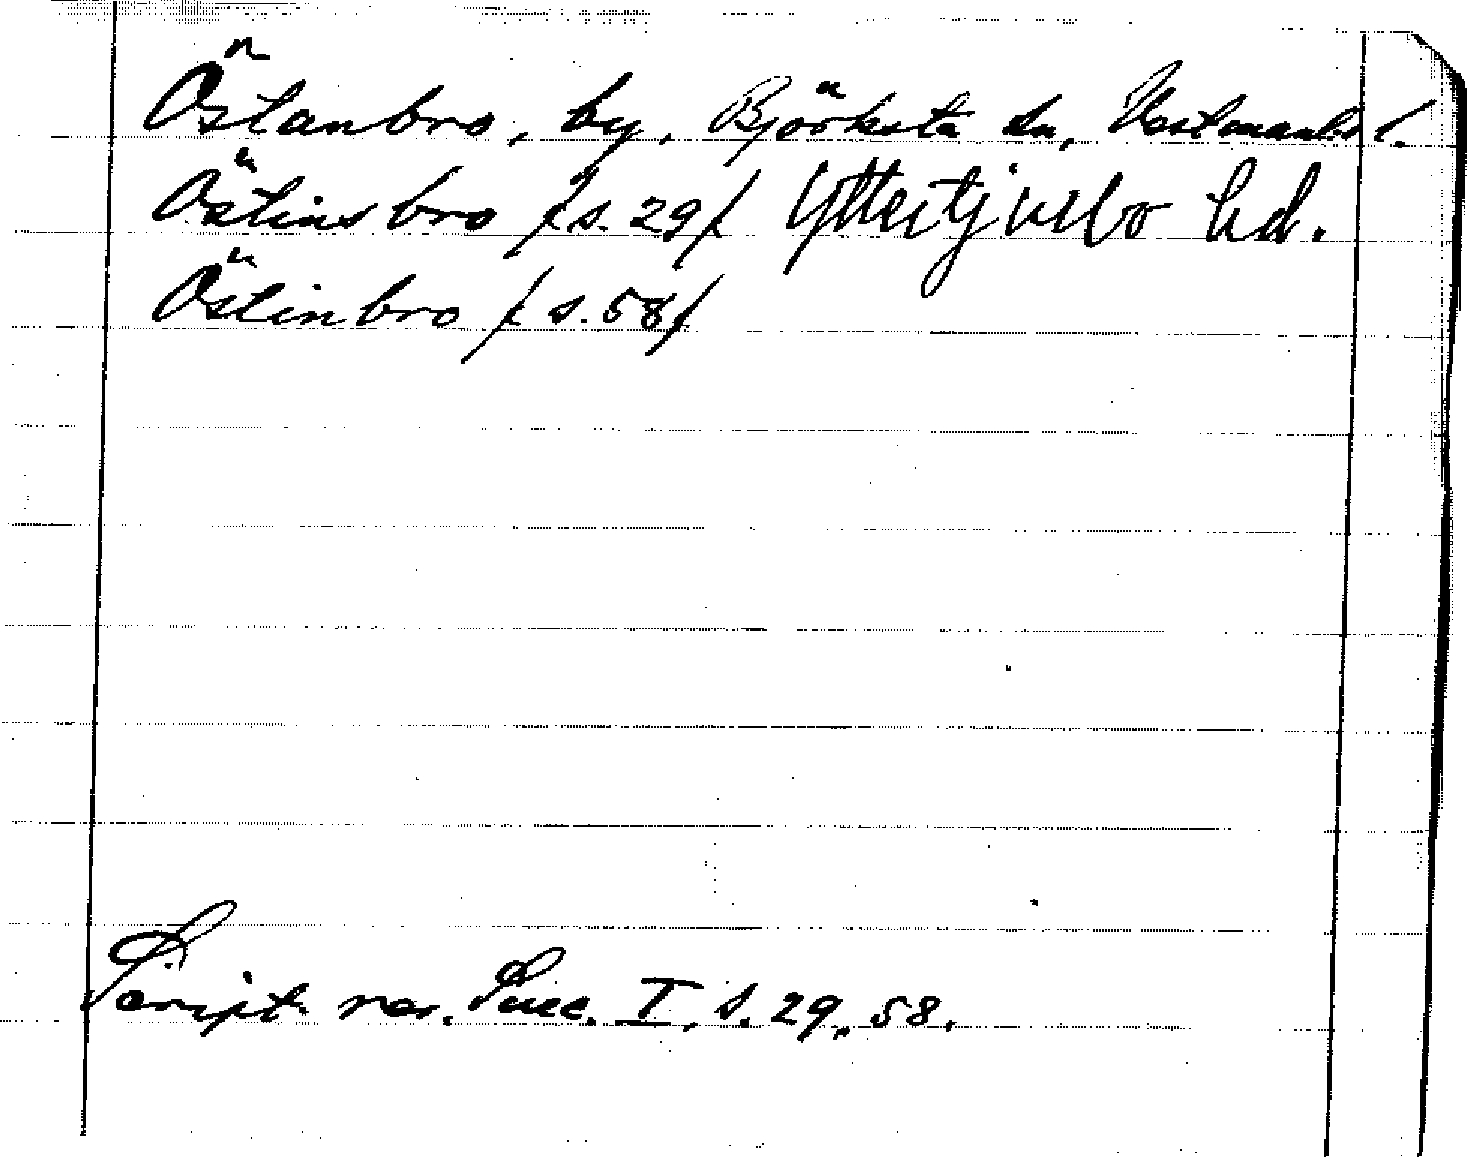 Östanbro, by, Björksta sn, Västmanl. l.
Östins bro /s. 29/ Yttertjurbo hd.
Östinbro /s. 58/
Script. rer. Suec. I, s. 29, 58.